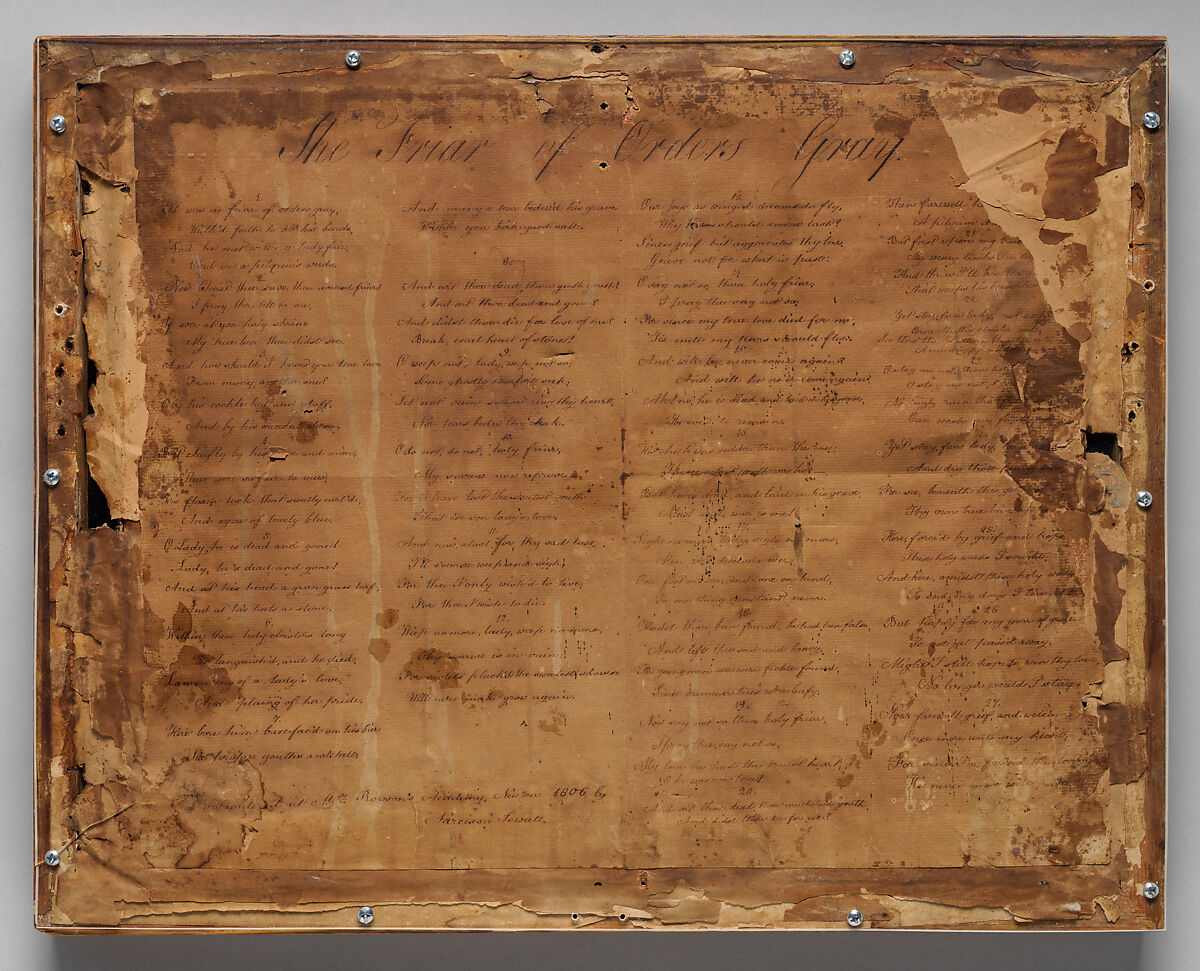 The Friar of Orders Gray.
1.
It was a friar of orders gray,
Walk'd forth to tell his beads,
And he met with a lady fair,
Clad in a pilgrim's weeds.
2.
Now Christ thee save, thou reverend friar!
I pray thee tell to me,
If ever at yon holy shrine
My true love thou didst see.
3.
And how should I know your true love
From many, another one?
O by his cockle hat and staff,
And by his sandal shoon.
4.
But chiefly by his face and mien,
That were so fair to view,
His flaxen locks that sweetly curl'd,
And eyes of lovely blue.
5.
O Lady, he is dead and gone!
Lady, he's dead and gone!
And at his head a green grass turf,
And at his heels a stone.
6.
Within these holy cloisters long
He languish'd, and he died,
Lamenting of a lady's love,
And 'plaining of her pride.
7.
Here bore him barefac'd on his bier
Six proper youths and tall;
And many a tear bedew'd his grave
Within yon kirk-yard wall.
8.
And art thou dead, thou gentle youth!
And art thou dead and gone!
And didst thou die for love of me!
Break, cruel heart of stone!
9.
O weep not, lady, weep not so;
Some ghostly comfort seek:
Let not vain sorrow rive thy heart,
Nor tears bedew thy cheek.
10.
O do not, do not, holy friar,
My sorrow now reprove;
For I have lost the sweetest youth
That e'er won lady's love.
11.
And now, alas! for thy sad loss,
I'll evermore weep and sigh;
For thee I only wish'd to live,
For thee I wish to die.
12.
Weep no more, lady, weep no more,
Thy sorrow is in vain:
For violets pluck'd the sweetest showers
Will ne'er make grow again.
13.
Our joys as winged dreams do fly,
Why then should sorrow last?
Since grief but aggravates thy loss,
Grieve not for what is past.
14.
O say not so, thou holy friar,
I pray thee say not so;
For since my true love died for me,
'Tis meet my tears should flow.
15.
And will he never come again?
And will he ne'er come again?
Ah! no, he is dead and laid in his grave,
For ever to remain.
16.
His cheek was redder than the rose;
The comeliest youth was he!
But he is dead, and laid in his grave,
Alas! and woe is me!
17.
Sigh no more, lady, sigh no more,
Men were deceivers ever,
One foot on sea, and one on land,
To one thing constant never.
18.
Hadst thou been fond, he had been false,
And left thee sad and heavy,
For young men ever were fickle found,
Since summer trees were leafy.
19.
Now say not so thou holy friar,
I pray thee, say not so,
My love he had the truest heart,
O he was ever true!
20.
And art thou dead, thou much lov'd youth,
And didst thou die for me?
Then farewell
A pilgrim
21.
But first upon my
My weary limbs I'll
And thrice I'll kiss the
That wraps his breathless
22.
Yet stay, fair lady,
Beneath this cloister
O stay me not,
O stay me not,
No drizzly rain that
Can wash my fault
Yet stay, fair lady,
And dry those
For see, beneath this
Thy own true love
25.
Here, forc'd by grief and hope
These holy weeds I sought,
And here, amidst these holy walls
To end my days I thought
26
But haply for my year of grace
Is not yet pass'd away,
Might I still hope to win thy love,
No longer would I stay.
27.
Now farewell grief, and welcome
Once more unto my heart;
For since I've found thee, lovely
We never more will part.
at Mrs. Rowson's Academy, Newton 1806, by
Narcissa Sewall.